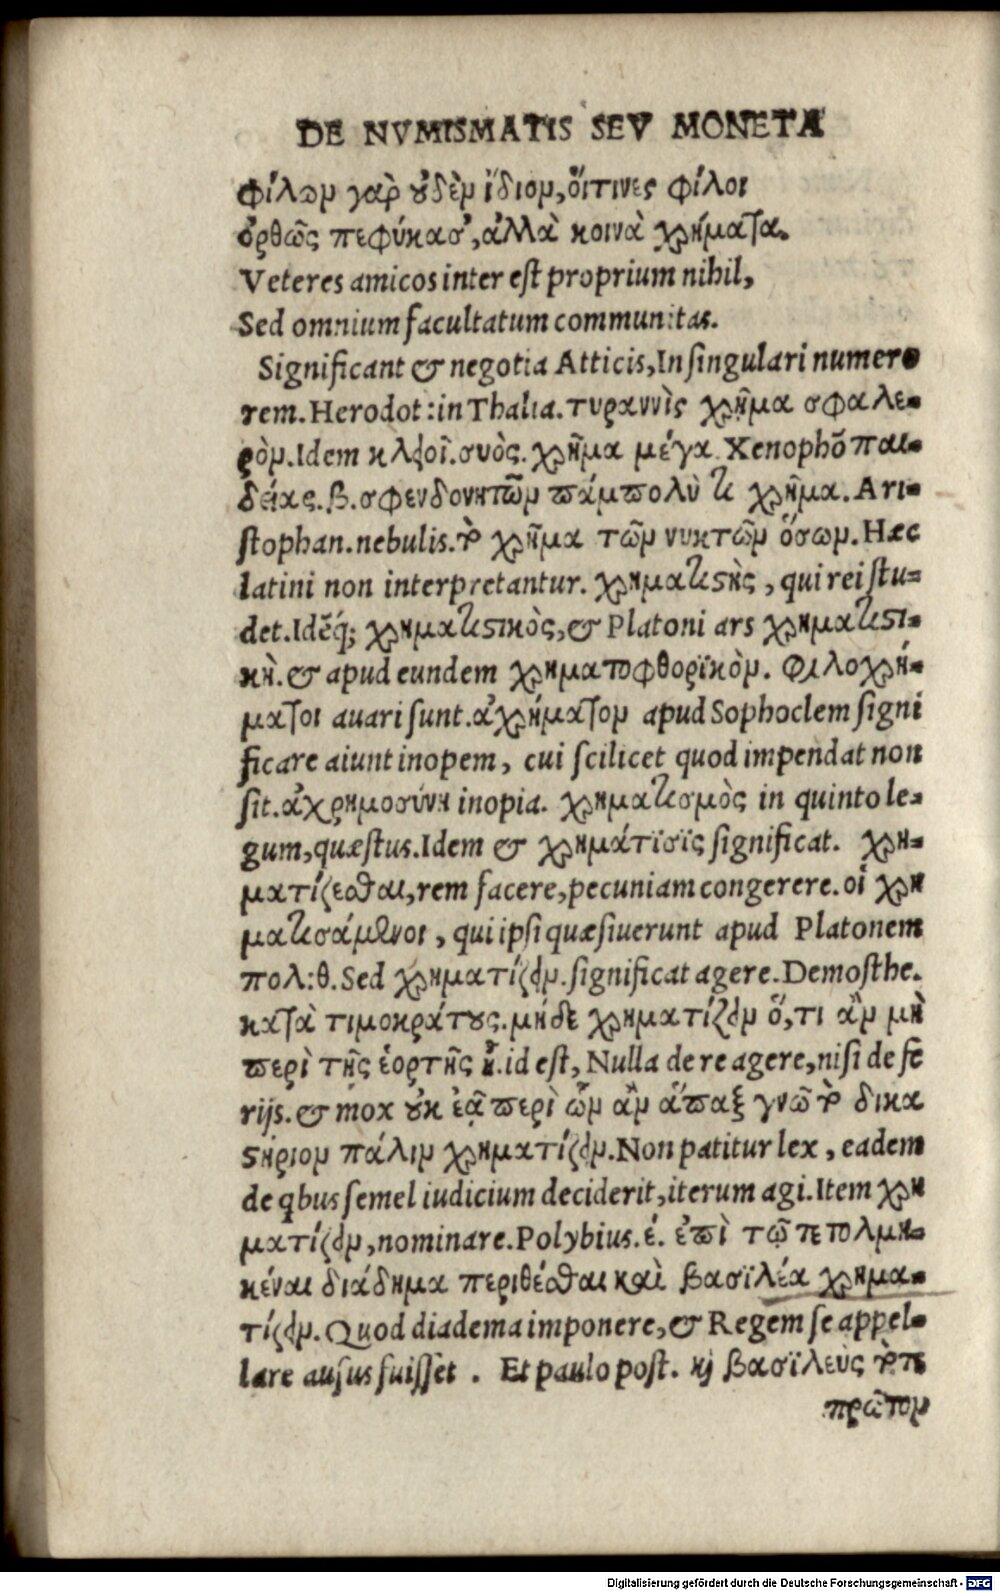 DE NVMISMATIS SEV MONETA
φίλωμ γαρ̀ ȣ̓δὲμ ἴδιομ, οἵτινες φίλοι
ὀρθῶς πεφύκασ', ἀλλὰ κοινὰ χρήματα.
Veteres amicos inter est proprium nihil,
Sed omnium facultatum communitas.
Significant & negotia Atticis, In singulari numero
rem. Herodot: in Thalia. τυραννὶς χρῆμα σφαλε-
ρὸμ. Idem κλειοῖ. συὸς. χρῆμα μέγα. Xenophō παι-
δείας. β. σφενδονητῶμ πάμπολύ τι χρῆμα. Ari-
stophan. nebulis. τὸ χρῆμα τῶμ νυκτῶμ ὅσωμ. Hæc
latini non interpretantur. χρηματιστὴς, qui rei stu-
det. Idēq́; χρηματιστικὸς, & Platoni ars χρηματιστι-
κὴ. & apud eundem χρηματοφθορϊκὸμ. φιλοχρή-
ματοι auari sunt. ἀχρήματομ apud Sophoclem signi
ficare aiunt inopem, cui scilicet quod impendat non
sit. ἀχρημοσύνη inopia. χρηματισμὸς in quinto le-
gum, quæstus. Idem & χρημάτϊσϊς significat. χρη-
ματίζεσθαι, rem facere, pecuniam congerere. οἱ χρη
ματισάμενοι, qui ipsi quæsiuerunt apud Platonem
πολ: θ. Sed χρηματίζειμ. significat agere. Demosthe.
κατὰ τιμοκράτȣς. μήδε χρηματίζειμ ὅ, τι ἂμ μὴ
περὶ τῆς ἑορτῆς ᾖ. id est, Nulla de re agere, nisi de fe
rijs. & mox ȣ̓κ ἐᾷ περὶ ὧμ ἂμ ἅπαξ γνῶ τὸ δικα
στήριομ πάλιμ χρηματίζειμ. Non patitur lex, eadem
de qbus semel iudicium deciderit, iterum agi. Item χρη
ματίζειμ, nominare. Polybius. έ. ἐπὶ τῷ τετολμη-
κέναι διάδημα περιθέσθαι καὶ βασϊλέα χρημα-
τίζειμ. Quod diadema imponere, & Regem se appel-
lare ausus fuisset. Et paulo post. καὶ βασϊλεὺς τότε
πρῶτομ